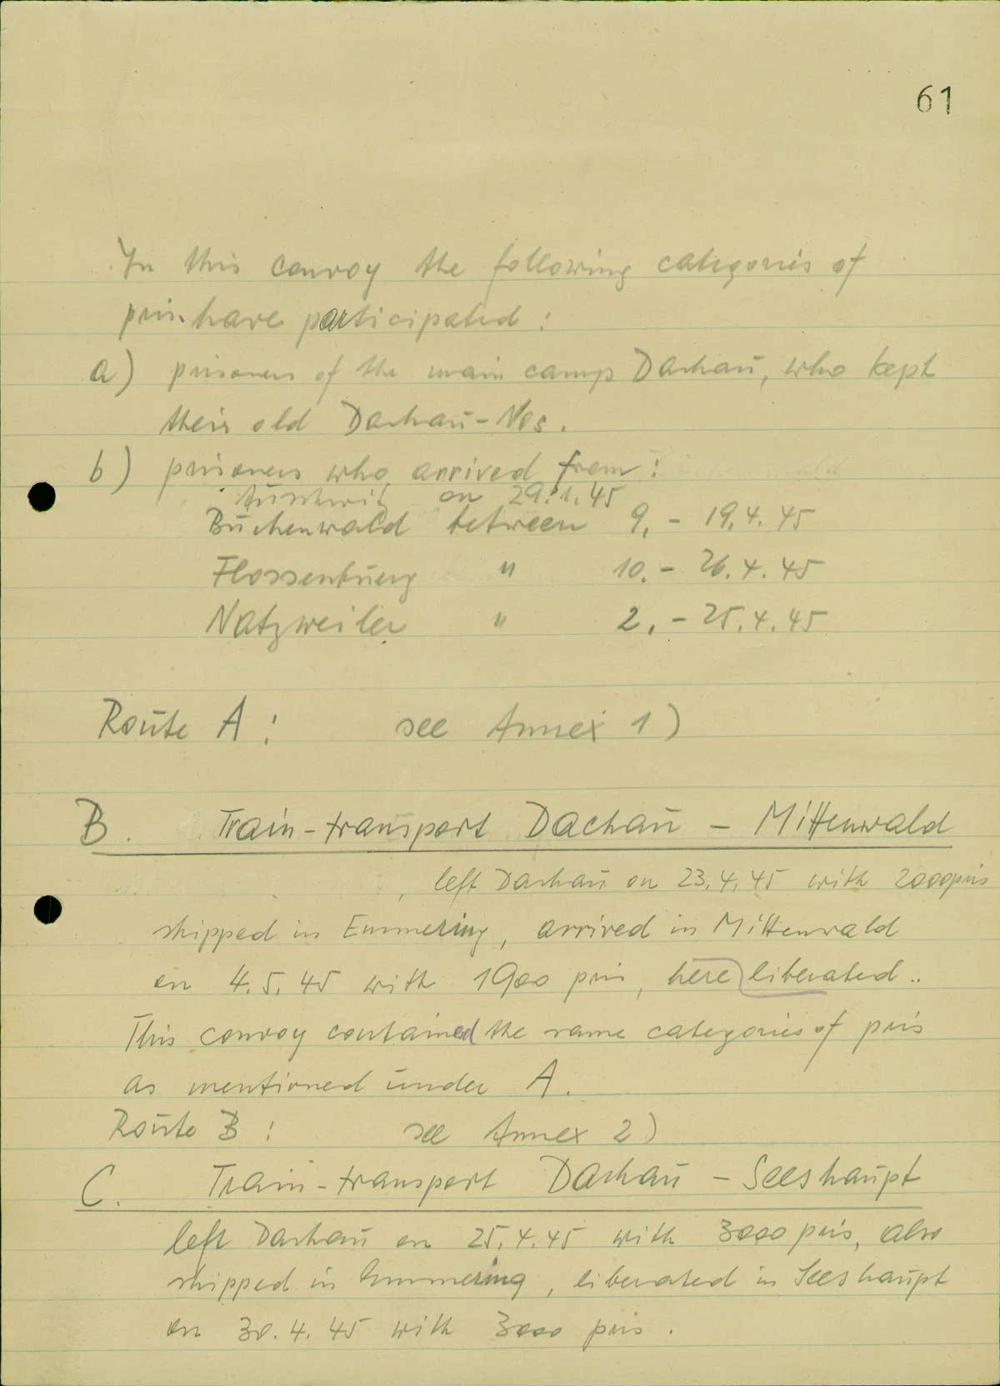 61
In this convoy the following categories of
pris. have participated :
a) prisoners of the main camp Dachau, who kept
their old Dachau-Nos.
b) prisoners who arrived from :
Auschwitz on 29.1.45
Buchenwald between 9. - 19.4.45
Flossenbuerg " 10. - 26.4.45
Natzweiler " 2. - 25.4.45
Route A : see Annex 1)
B. Train-transport Dachau - Mittenwald
left Dachau on 23.4.45 with 2000 pris
shipped in Emmering, arrived in Mittenwald
on 4.5.45 with 1900 pris, here liberated..
This convoy contained the same categories of pris
as mentioned under A.
Route B : see Annex 2)
C. Train-transport Dachau - Seeshaupt
left Dachau on 25.4.45 with 3000 pris, also
shipped in Emmering, liberated in Seeshaupt
on 30.4.45 with 3000 pris.